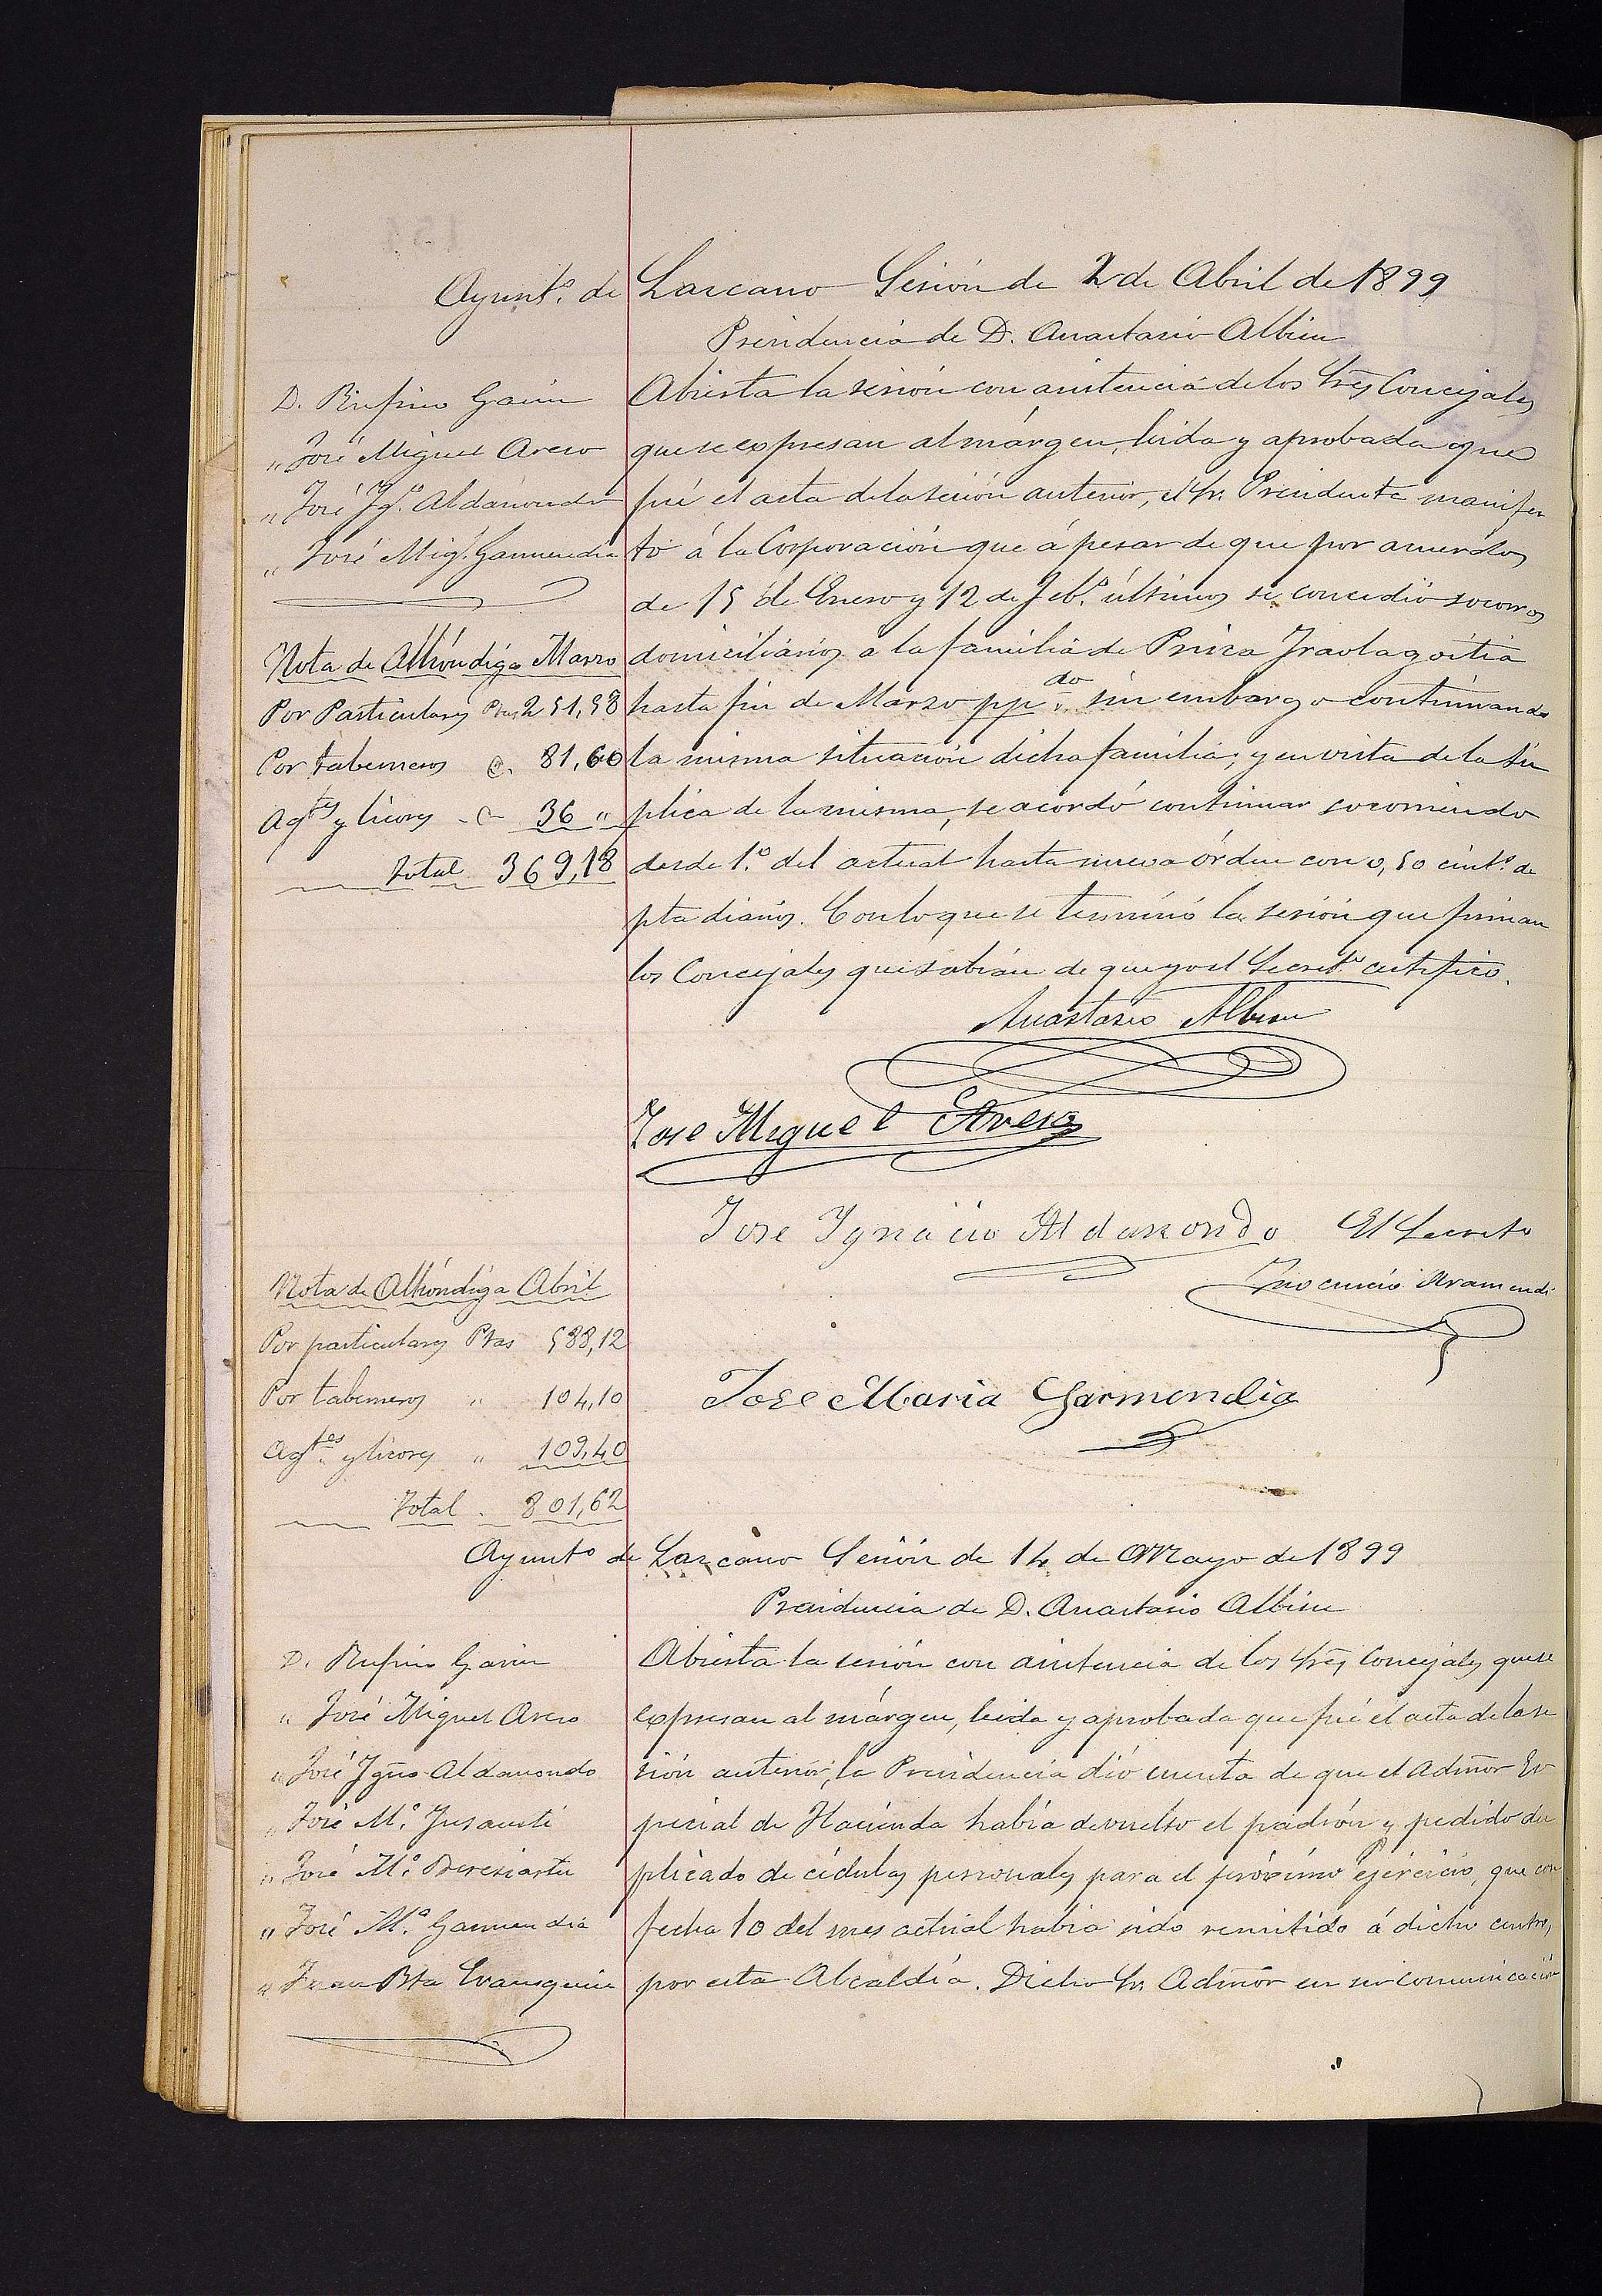 Ayunt.º de Lazcano Sesión de 2 de Abril de 1899
Presidencia de D. Anastasio Albisu
D. Rufino Garin
„ José Miguel Arezo
„ José Ig.º Aldasoro
„ José Mig.l Garmendia
Nota de Alhóndiga Marzo
Por Particulares Ptas 251,58
Por taberneros 81,60
Ag.tes y licores 36 „
Total 369,18
Abierta la sesión con asistencia de los Sres Concejales
que se expresan al márgen, leida y aprobada que
fué el acta de la sesión anterior, el Sr. Presidente manifes
tó á la Corporación que á pesar de que por acuerdos
de 15 de Enero y 12 de Feb.º últimos se concedió socorros
domiciliarios a la familia de Iraolagoitia
hasta fin de Marzo pp.do sin embargo continuando
la misma situación dicha familia; y en vista de la sú
plica de la misma, se acordó continuar socorriendo
desde 1.º del actual hasta nueva órden con 0,50 cént.s de
pta diarios. Con lo que se terminó la sesión que firman
los Concejales que sabian de que yo el Secret.º certifico.
Anastasio Albisu
Jose Miguel Arezo
Jose Ignacio Aldasondo El Secreto
Inocencio Aramendi
Jose Maria Garmendia
Nota de Alhóndiga Abril
Por particulares Ptas 588,12
Por taberneros „ 104,10
Ag.tes y licores „ 109,40
Total 801,62
Ayunt.º de Lazcano Sesión de 14 de Mayo de 1899
Presidencia de D. Anastasio Albisu
D. Rufino Garin
„ José Miguel Arezo
„ José Igno Aldasondo
„ José M.ª Insausti
„ José M.ª Beresiartu
„ José M.ª Garmendia
„ Juan Bta
Abierta la sesión con asistencia de los Sres Concejales que se
expresan al márgen, leida y aprobada que fué el acta de la se
sión anterior, la Presidencia dió cuenta de que el Admor Es
pecial de Hacienda habia devuelto el padrón y pedido du
plicado de cédulas personales para el próximo ejercicio, que con
fecha 10 del mes actual habia sido remitido á dicho centro,
por esta Alcaldía. Dicho Sr. Admor en su comunicación